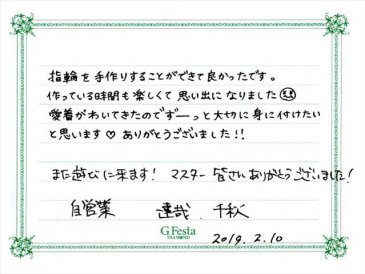 指輪を手作りすることができて良かったです。
作っている時間も楽しくて思い出になりました
愛着がわいてきたのでずーっと大切に身に付けたい
と思います♡ ありがとうございました!!
また遊びに来ます! マスター皆さんありがとうございました!
自営業 達哉 千秋
G.Festa
DIAMOND
2019.2.10